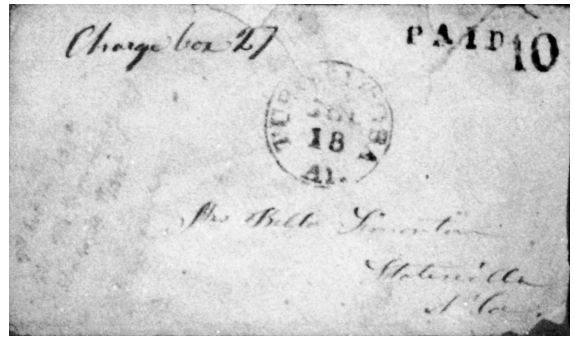 Charge box 27
PAID 10
TUSCALOOSA
18
Al.
Mrs Bella Simonton
Statesville
N. Ca.